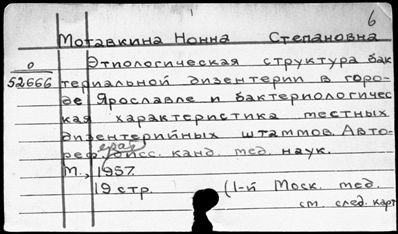 6
Мотавкина Нонна Степановна
0
52666
Этиологическая структура бак
териальной дизентерии в горо-
де Ярославле и бактериологичес
кая характеристика местных
дизентерийных штаммов. Авто-
реферат дисс. канд. мед. наук.
М., 1957.
19 стр. (1-й Моск. мед.
см. след. карт